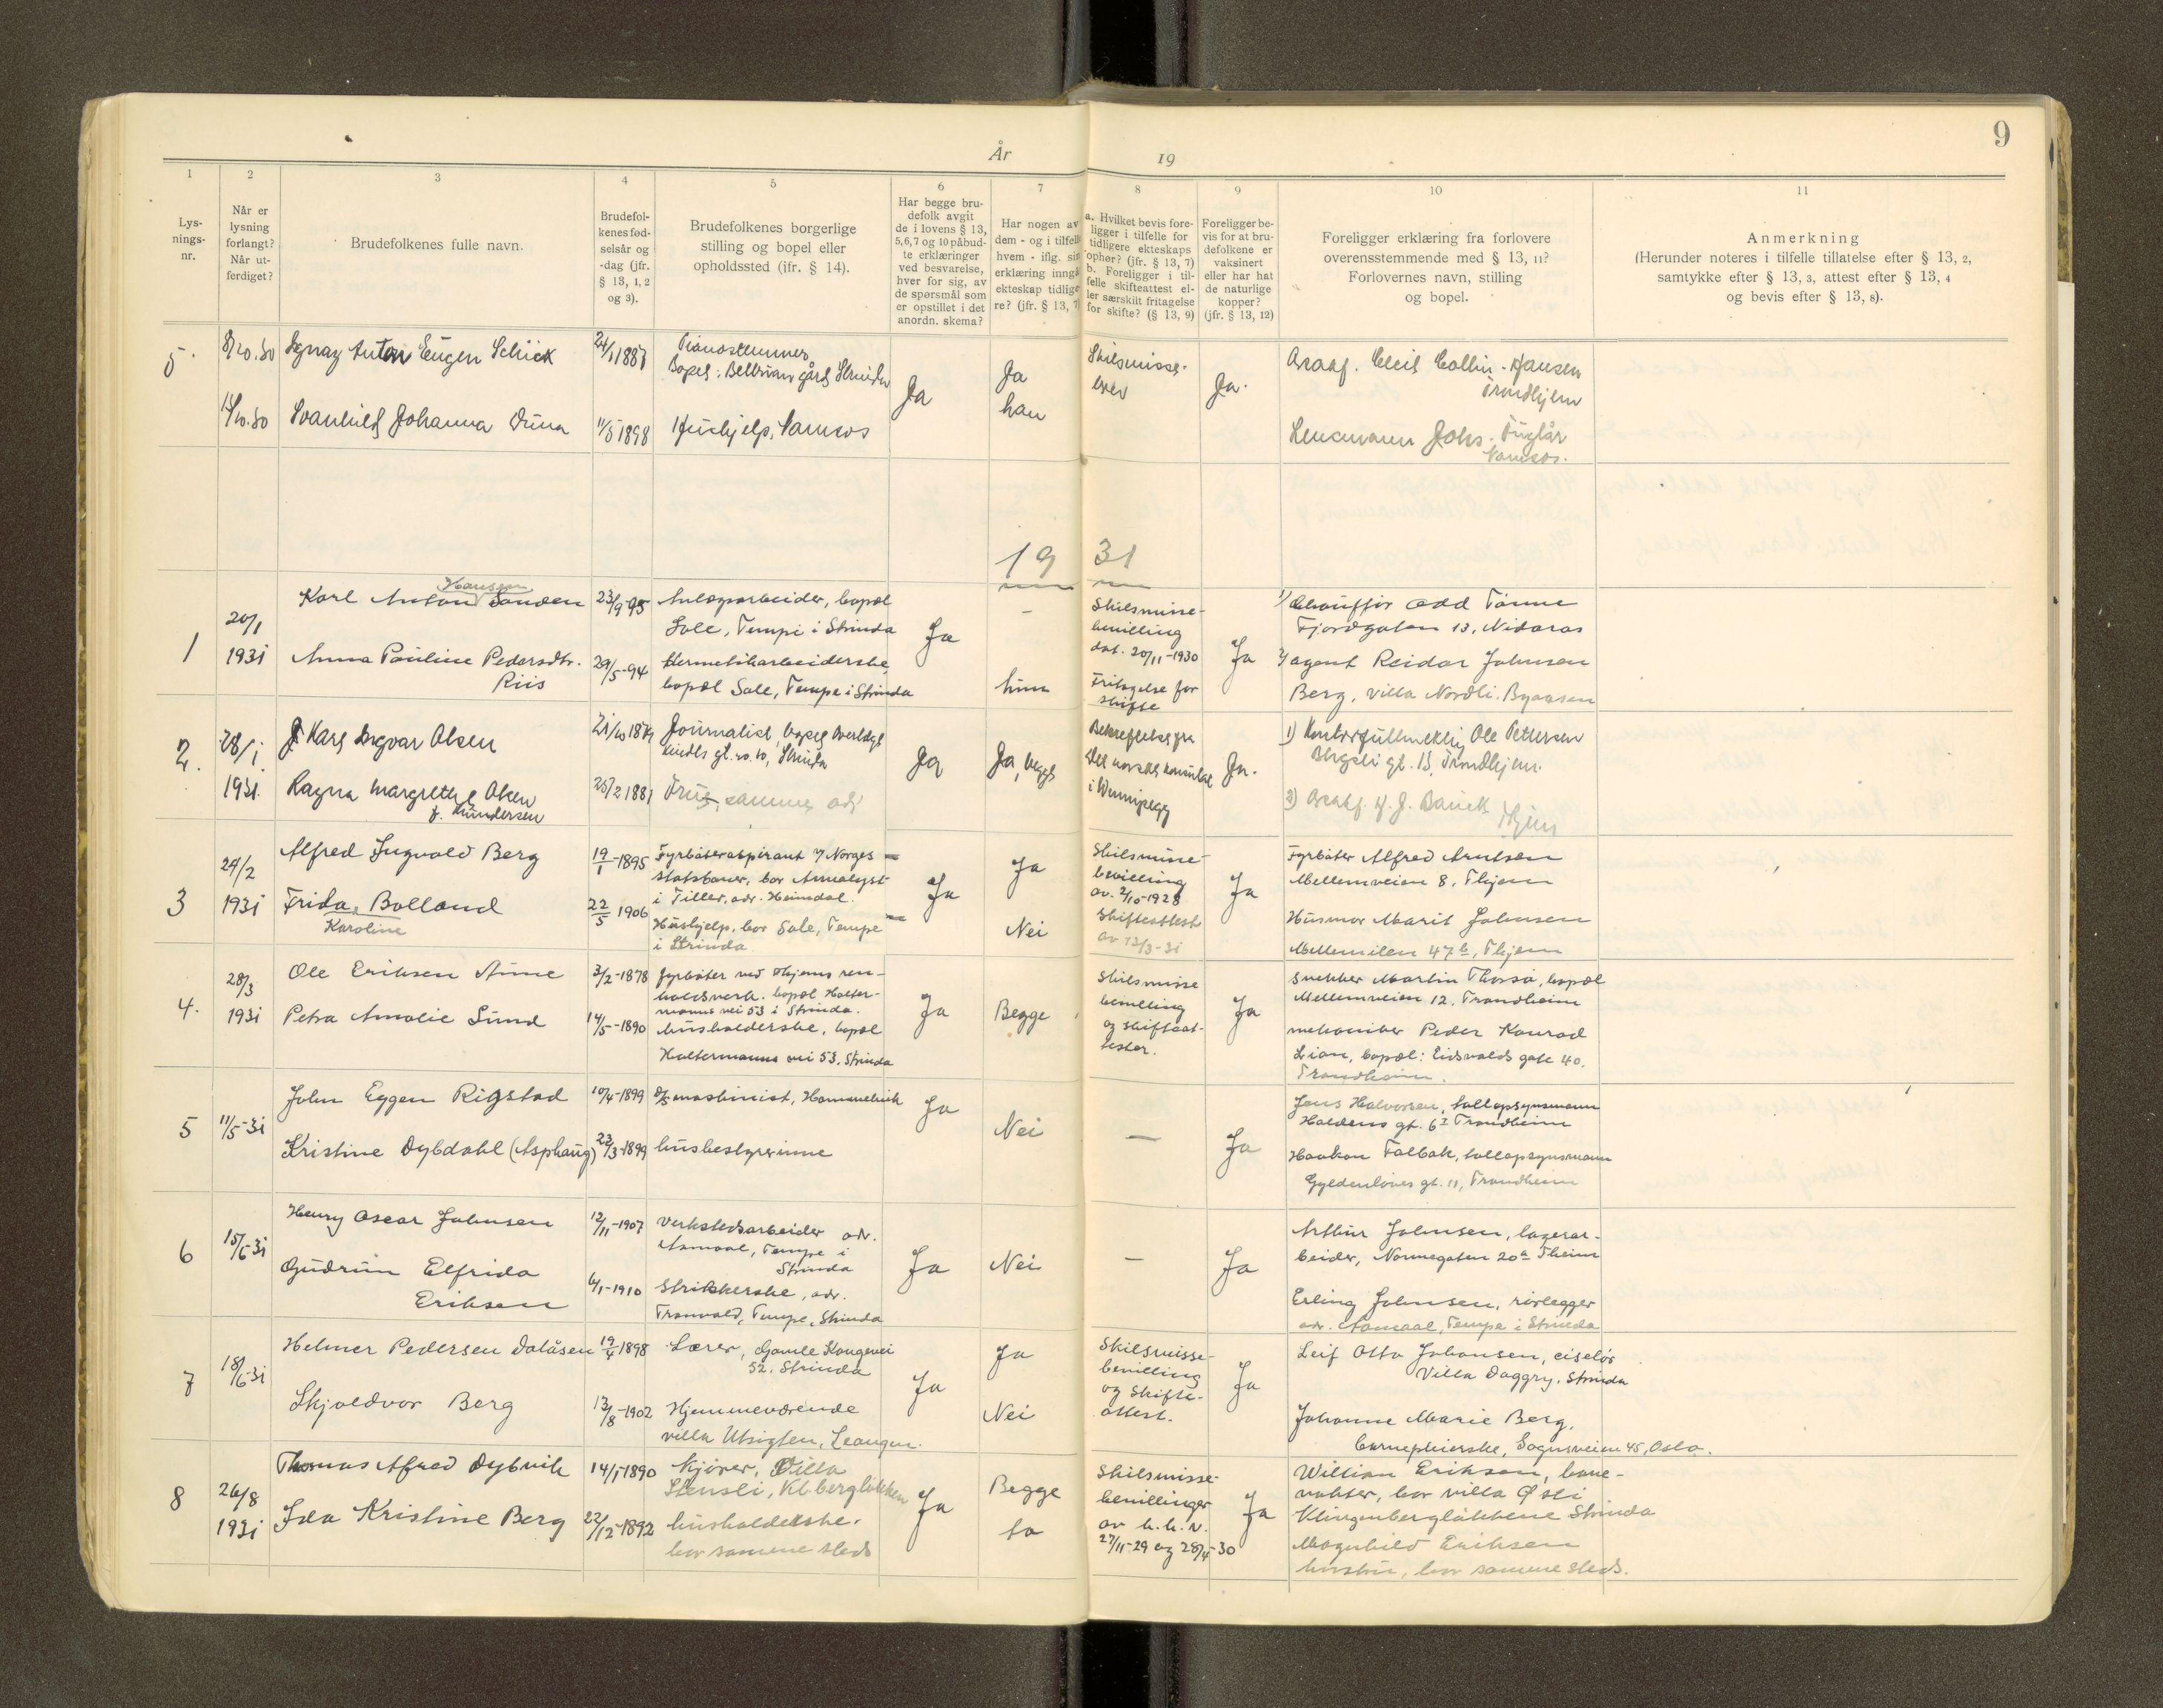 9
År 19
1 2 3 4 5 6 7 8 9 10 11
Lys-
nings-
nr.
Når er
lysning
forlangt?
Når ut-
ferdiget?
Brudefolkenes fulle navn.
Brudefol-
kenes fød-
selsår og
-dag (jfr.
§ 13, 1, 2
og 3).
Brudefolkenes borgerlige
stilling og bopel eller
opholdssted (ifr. § 14).
Har begge bru-
defolk avgit
de i lovens § 13,
5,6,7 og 10 påbud-
te erklæringer
ved besvarelse,
hver for sig, av
de spørsmål som
er opstillet i det
anordn. skema?
Har nogen av
dem - og i tilfelle
hvem - iflg. sin
erklæring inngå
ekteskap tidlige
re? (jfr. § 13, 7)
a. Hvilket bevis fore-
ligger i tilfelle for
tidligere ekteskaps
ophør? (jfr. § 13, 7)
b. Foreligger i til-
felle skifteattest el-
ler særskilt fritagelse
for skifte? (§ 13, 9)
Foreligger be-
vis for at bru-
defolkene er
vaksinert
eller har hat
de naturlige
kopper?
(jfr. § 13, 12)
Foreligger erklæring fra forlovere
overensstemmende med § 13, 11?
Forlovernes navn, stilling
og bopel.
Anmerkning
(Herunder noteres i tilfelle tillatelse efter § 13, 2,
samtykke efter § 13, 3, attest efter § 13, 4
og bevis efter § 13, 8).
5
8/10.30
Ignaz Anton Eugen Schick
24/1 1887
Pianostemmer,
Bopel: gård Strinda
Ja
Ja
han
Skilsmisse-
brev
Ja.
Collin-Hansen
Trondhjem
11/10.30
Svanhild Johanna Duna
11/5 1898
Hushjelp, Namsos
Lensmann Johs. Fuglår
Namsos.
19 31
1
20/1
1931
Karl Anton Hansen Sanden
23/9-95
Anlegsarbeider, bopæl
Sole, Tempe i Strinda
Ja
-
Skilsmisse-
bevilling
dat. 20/11-1930
Fritagelse for
skifte
Ja
1) Chauffør Odd Tønne
Fjordgaten 13, Nidaros
Anna Pauline Pedersdtr.
Riis
29/5-94
Hermetikarbeiderske,
bopæl Sole, Tempe i Strinda
hun
2) agent Reidar Johnsen
Berg, villa Nordli. Byaasen
2.
28/1
1931.
Karl Ingvar Olsen
21/10 1879
Journalist, bopel Overlege
gt. no. 10, Strinda
Ja
Ja, begge
Bekreftelse fra
Det norske konsulat
i Winnipegg
Ja.
1) Kontorfullmektig Ole Pettersen
gt. 13, Trondhjem.
Ragna Margrethe Olsen
f. Gundersen
25/2 1881
Frue, samme adr
2)
Thjem
3
24/2
1931
Alfred Ingvald Berg
19/1-1895
Fyrbøteraspirant v/ Norges
statsbaner, bor
i Tiller, adr. Heimdal.
Ja
Ja
Skilsmisse-
bevilling
av. 2/10-1928
Skifteattest
av 13/3-31
Ja
Fyrbøter Alfred Arntsen
Mellemveien 8, Thjem
Frida Bolland
Karoline
22/5 1906
Hushjelp, bor Sole, Tempe
i Strinda
Nei
Husmor Marit Johnsen
Mellemilen 47 b, Thjem
4.
28/3
1931
Ole Eriksen Aune
3/2-1878
fyrbøter ved Thjems ren-
holdsverk. bopæl Holter-
manns vei 53 i Strinda.
Ja
Begge
Skilsmisse
bevilling
og skifteat-
tester.
Ja
Snekker Martin Thorsø, bopæl
Mellemveien 12, Trondheim
Petra Amalie Lund
14/5-1890
husholderske, bopæl
Holtermanns vei 53, Strinda
mekaniker Peder Konrad
Lian, bopæl: Eidsvolds gate 40.
Trondheim.
5
11/5-31
John Eggen Rigstad
10/4-1899
D/S maskinist, Hommelvik
Ja
Nei
—
Ja
Jens Halvorsen, tollopsynsmann
Haldens gt. 6 I Trondheim
Kristine Dybdahl (Asphaug)
23/3-1899
husbestyrerinne
Haakon Falbak, tollopsynsmann
Gyldenløves gt. 11, Trondheim
6
15/6-31
Henry Oscar Johnsen
12/11-1907
Verkstedsarbeider adr.
Aamoal, Tempe i
Strinda
Ja
Nei
—
Ja
Arthur Johnsen, lagerar-
beider, Nonnegaten 20 a Theim
Gudrun Elfrida
Eriksen
6/1-1910
Strikkerske, adr.
Tranvold, Tempe, Strinda
Erling Johnsen, rørlegger
adr. Aamoal, Tempe i Strinda
7
18/6-31
Helmer Pedersen Dalåsen
19/4-1898
Lærer, Gamle Kongevei
52. Strinda
Ja
Ja
Skilsmisse-
bevilling
og skifte-
attest.
Ja
Leif Otto Johansen, ciselør
Villa Daggry, Strinda
Skjoldvor Berg
13/8-1902
Hjemmeværende
villa Utsigten, Leangen.
Nei
Johanne Marie Berg,
barnepleierske, Sognsveien 45, Oslo.
8
26/8
1931
Thomas Alfred Dybvik
14/1-1890
kjører, Villa
Stensli, Kl.bergløkken
Ja
Begge
to
Skilsmisse-
bevillinger
av h.h.v.
27/11-29 og 28/4-30
Ja
William Eriksen, bane-
vokter, bor villa Østi
Klingenbergløkkene Strinda
Ida Kristine Berg
22/12-1892
husholderske.
bor samme sted
Magnhild Eriksen
hustru, bor samme sted.